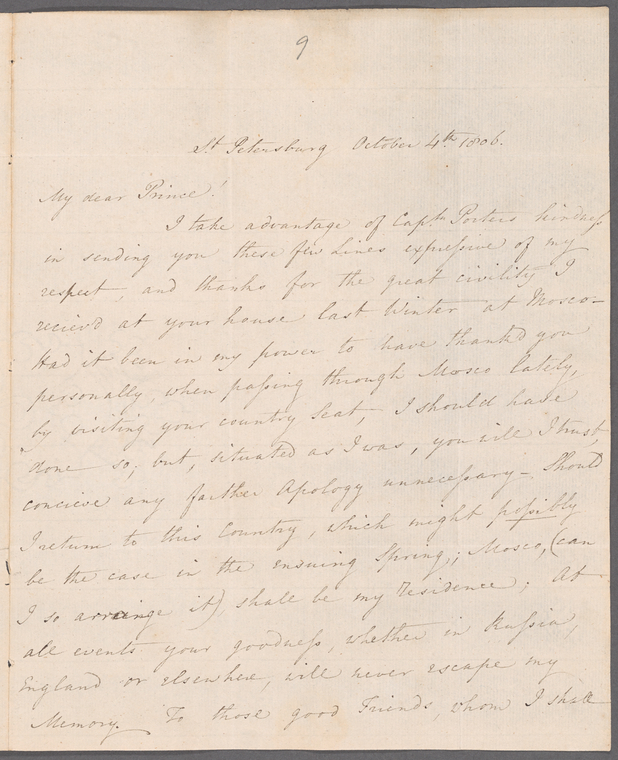 9
St Petersburg October 4th 1806.
My dear Prince!
I take advantage of Captn Porters kindness
in sending you these few Lines expressive of my
respect, and thanks for the great civility I
reciev'd at your house last Winter at Mosco-
Had it been in my power to have thank'd you
personally, when passing through Mosco lately,
by visiting your country Seat, I should have
done so; but, situated as I was, you will I trust,
concieve any farther Apology unnecessary- Should
I return to this Country, which might possibly
be the case in the ensuing Spring; Mosco, (can
I so arrange it), shall be my residence; At
all events your goodness, whether in Russia,
England or elsewhere, will never escape my
Memory. To those good Friends, whom I shall